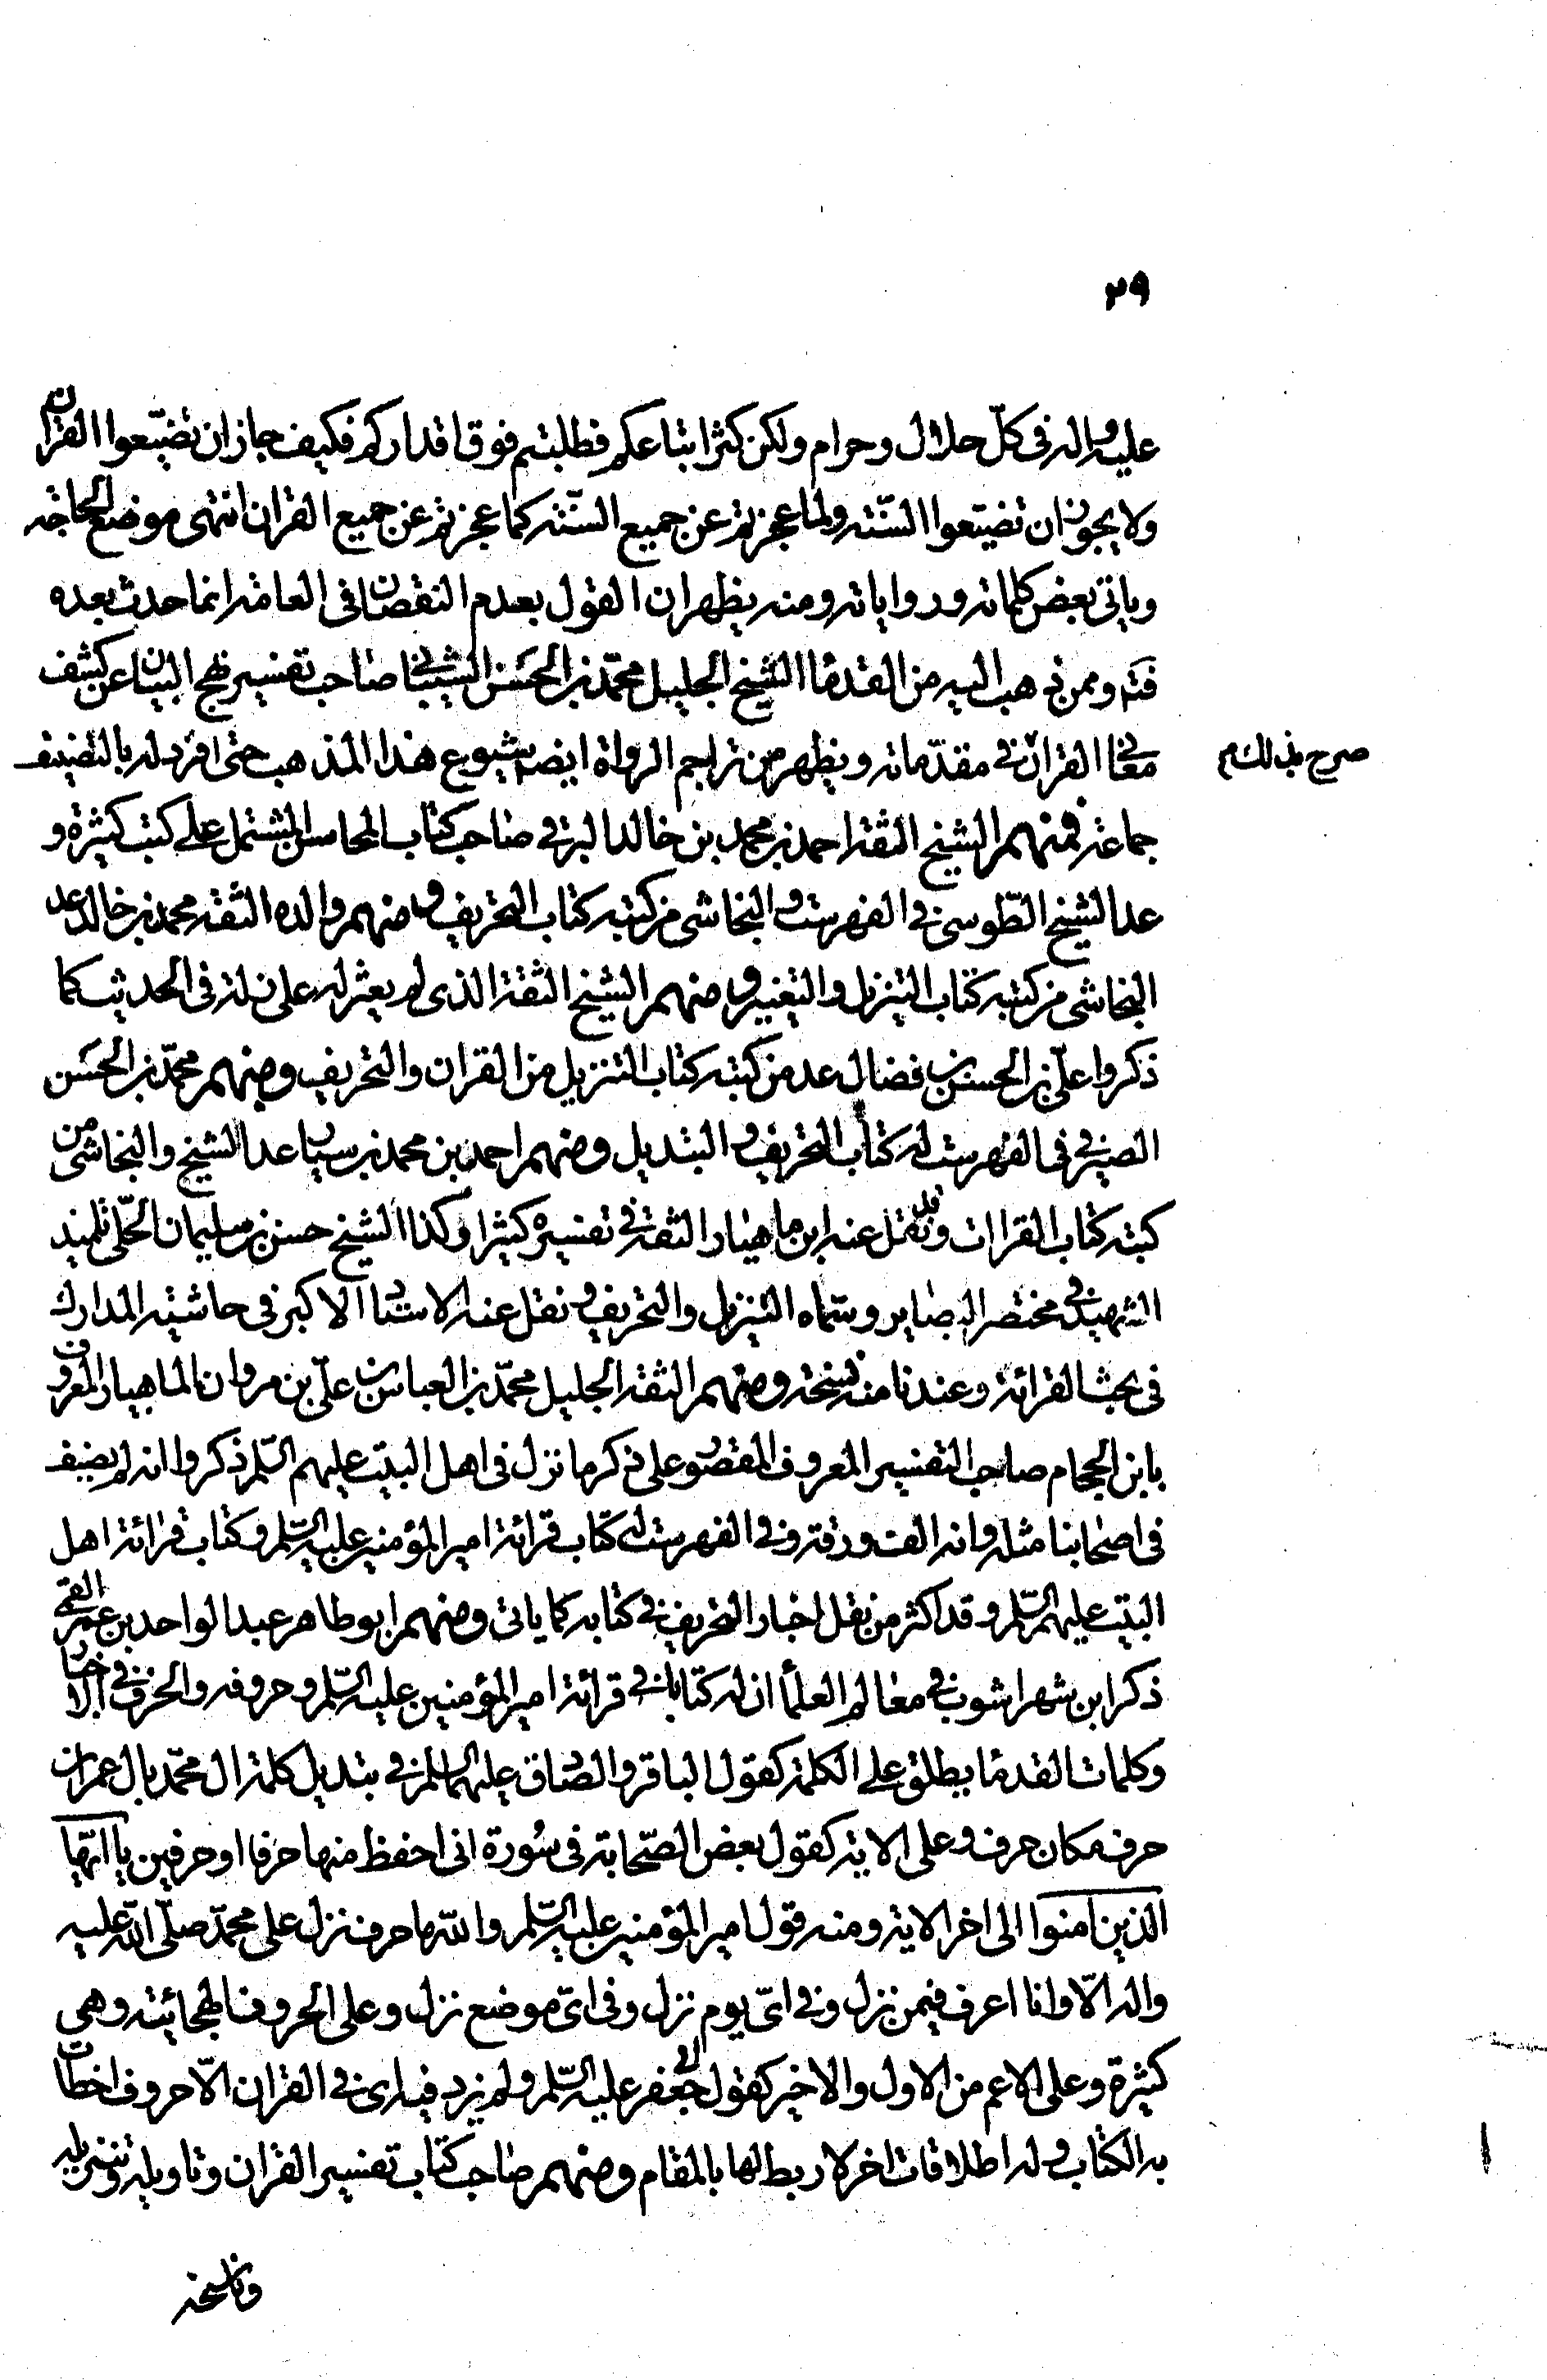 ٢٩
عليه واله في كلّ حلال وحرام ولكن كثر اتباعكم فطلبتم فوق اقداركم فكيف جاز ان تضيّعوا القران
ولا يجوز ان تضيّعوا السّنة ولما عجزتم عن جميع السّنة كما عجزتم عن جميع القران انتهى موضع الحاجة
وياتي بعض كلماته ورواياته ومنه يظهر ان القول بعدم النقصان في العامة انما حدث بعده
فتم وممن ذهب اليه من القدما الشيخ الجليل محمّد بن الحسن الشيباني صاحب تفسير نهج البيان عن كشف
معاني القران في مقدّماته ويظهر من تراجم الرواة ايضم شيوع هذا المذهب حتى افرد له بالتصنيف
صرح بذلك
جماعة فمنهم الشيخ الثقة احمد بن محمد بن خالد البرقي صاحب كتاب المحاسن المشتمل على كتب كثيرة و
عد الشيخ الطّوسي في الفهرست والنجاشي من كتبه كتاب التحريف ومنهم والده الثقة محمد بن خالد عد
النجاشي من كتبه كتاب التنزيل والتغيير ومنهم الشيخ الثقة الذي لم يعثر له على زلة في الحديث كما
ذكروا علي بن الحسن بن فضال عد من كتبه كتاب التنزيل من القران والتحريف ومنهم محمّد بن الحسن
الصيرفي في الفهرست له كتاب التحريف والتبديل ومنهم احمد بن محمد بن سيار عد الشيخ والنجاشي من
كتبه كتاب القراات وقد نقل عنه ابن ماهيار الثقة في تفسيره كثيرا وكذا الشيخ حسن بن سليمان الحلّي تلميذ
الشهيد في مختصر البصاير وسمّاه التنزيل والتحريف ونقل عنه الاستاد الاكبر في حاشية المدارك
في بحث القرائة وعندنا منه نسخة ومنهم الثقة الجليل محمّد بن العباس بن عليّ بن مروان الماهيار المعروف
بابن الحجام صاحب التفسير المعروف المقصور على ذكر ما نزل في اهل البيت عليهم السّلم ذكروا انه لم يصنف
في اصحابنا مثله وانه الف ورقة وفي الفهرست له كتاب قرائة امير المؤمنين عليه السّلم وكتاب قرائة اهل
البيت عليهم السّلم وقد اكثر من نقل اخبار التحريف في كتابه كما ياتي ومنهم ابو طاهر عبد الواحد بن عمر القمي
ذكر ابن شهراشوب في معالم العلما ان له كتابا في قرائة امير المؤمنين عليه السّلم وحروفه والحرف في الاخبار
وكلمات القدما يطلق على الكلمة كقول الباقر والصادق عليهما السلم في تبديل كلمة ال محمّد بال عمران
حرف مكان حرف وعلى الاية كقول بعض الصّحابة في سورة اني احفظ منها حرفا او حرفين يا ايّها
الّذين امنوا الى اخر الاية ومنه قول امير المؤمنين عليه السّلم والله ما حرف نزل على محمّد صلّى الله عليه
واله الّا وانا اعرف فيمن نزل وفي ايّ يوم نزل وفي ايّ موضع نزل وعلى الحروف الهجائية وهي
كثيرة وعلى الاعم من الاول والاخير كقول ابي جعفر عليه السّلم ولم يزد فيه اي في القران الّا حروف اخطات
به الكتاب وله اطلاقات اخر لا ربط لها بالمقام ومنهم صاحب كتاب تفسير القران وتاويله وتنزيله
وناسخه